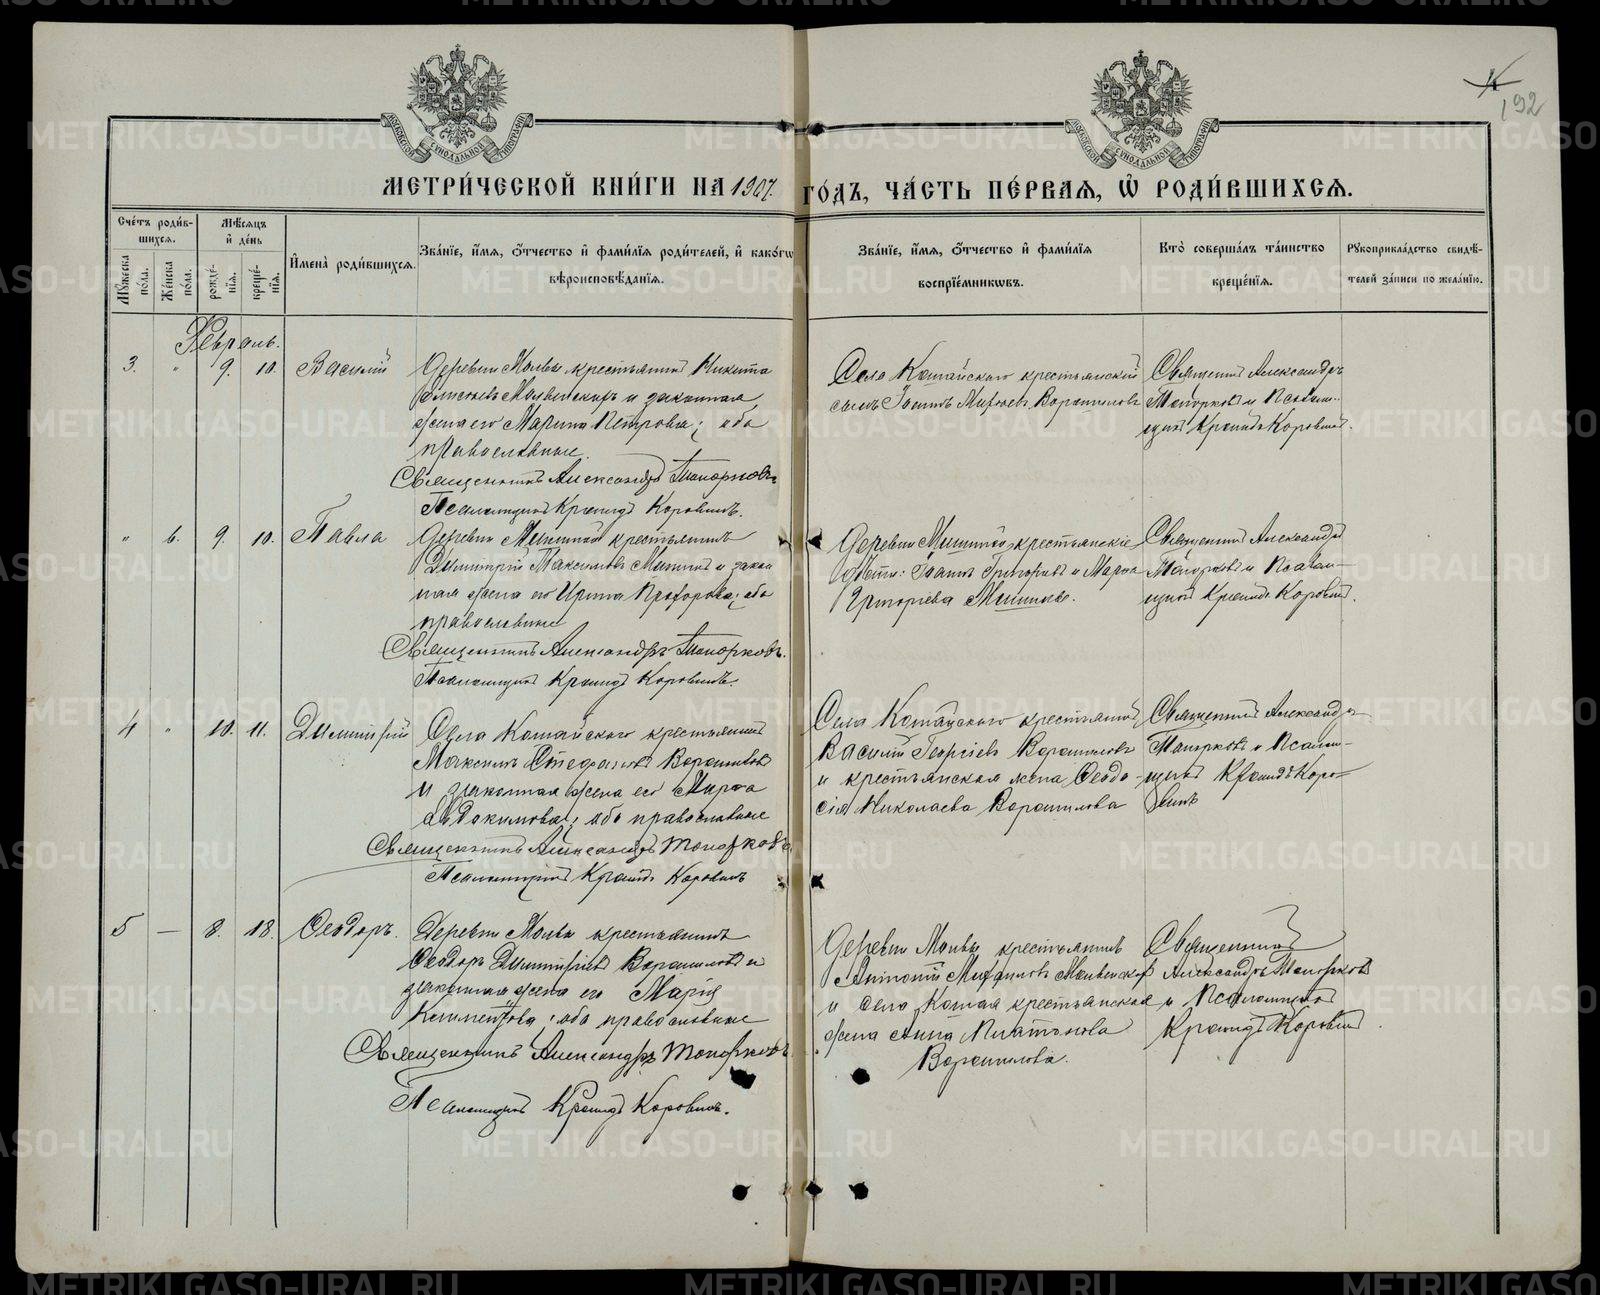 192
МОСКОВСКОЙ СѴНОДАЛЬНОЙ ТИПОГРАФИИ
МОСКОВСКОЙ СѴНОДАЛЬНОЙ ТИПОГРАФИИ
МЕТРИ́ЧЕСКОЙ КНИ́ГИ НА 1907. ГО́ДЪ, ЧА́СТЬ ПЕ́РВАЯ, Ѽ РОДИ́ВШИХСЯ.
Сче́тъ роди́в-
шихся.
Мꙋ́жеска по́ла.
Же́нска по́ла.
Мѣ́сяцъ
и҆ де́нь
рожде́-нїя.
креще́-нїя.
И҆мена̀ роди́вшихся.
Зва́нїе, и҆́мя, ѻ҆́тчество и҆ фами́лїя роди́телей, и҆ како́гѡ
вѣроисповѣ́данїя.
Зва́нїе, и҆́мя, ѻ҆́тчество и҆ фами́лїя
воспрїе́мникѡвъ.
Кто̀ соверша́лъ та́инство
креще́нїя.
Рꙋкоприкла́дство свидѣ́-
телей за́писи по жела́нїю.
Февраль.
3. " 9. 10. Василий
Деревни Мольвы крестьянинъ Никита
и законная
жена его Марина Петровна; оба
православные.
Священникъ Александръ Топорковъ
Псаломщикъ Кронидъ Коровинъ.
Села Кошайского крестьянский
сынъ Іоаннъ Ворошиловъ
Священникъ Александръ
Топорковъ и Псалом-
щикъ Кронидъ Коровинъ.
" 6. 9. 10. Павла
Деревни Мишиной крестьянинъ
Димитрій Максимовъ Мишинъ и закон
ная жена его Ирина Прохорова; оба
православные
Священникъ Александръ Топорковъ.
Псаломщикъ Кронидъ Коровинъ.
Деревни Мишиной крестьянскіе
дѣти: Іоаннъ Григорьевъ и Марѳа
Григоріева Мишины.
Священникъ Александръ
Топорковъ и Псалом-
щикъ Кронидъ Коровинъ.
4 " 10. 11. Димитрій
Села Кошайского крестьянинъ
Максимъ Стефановъ Ворошиловъ
и законная жена его Марѳа
Евдокимова; оба православные
Священникъ Александръ Топорковъ
Псаломщикъ Кронидъ Коровинъ
Села Кошайского крестьянинъ
Василій Георгіевъ Ворошиловъ
и крестьянская жена Ѳеодо-
сія Николаева Ворошилова
Священникъ Александръ
Топорковъ и Псалом-
щикъ Кронидъ Коро-
винъ
5 — 8. 18. Ѳеодоръ.
Деревни Мольвы крестьянинъ
Ѳеодоръ Димитріевъ Ворошиловъ и
законная жена его Марія
Климентова; оба православные
Священникъ Александръ Топорковъ
Псаломщикъ Кронидъ Коровинъ.
Деревни Мольвы крестьянинъ
Антоній
и Села Кошая крестьянская
жена Анна
Ворошилова.
Священникъ
Александръ Топорковъ
и Псаломщикъ
Кронидъ Коровинъ.
METRIKI.GASO-URAL.RU